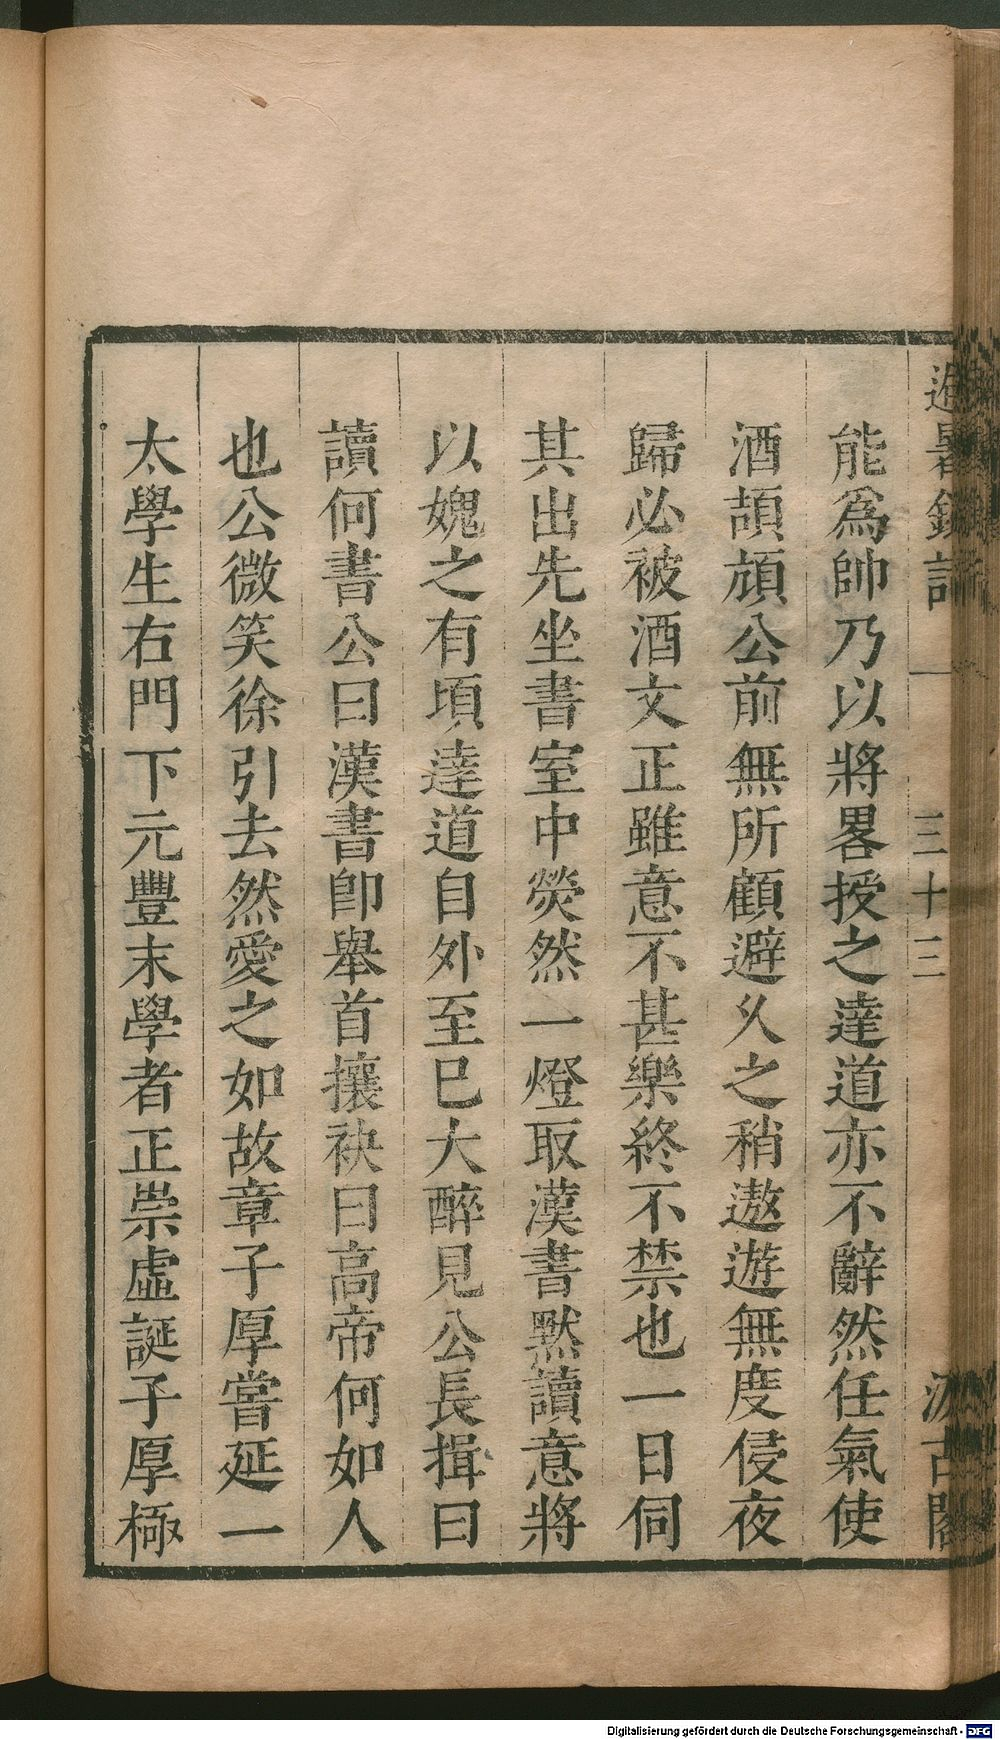 避暑錄話
三十三
汲古閣
能爲帥乃以將畧授之達道亦不辭然任氣使
酒頡頏公前無所顧避乆之稍遨遊無度侵夜
歸必被酒文正雖意不甚樂終不禁也一日伺
其出先坐書室中熒然一燈取漢書默讀意將
以媿之有頃達道自外至巳大醉見公長揖曰
讀何書公曰漢書卽舉首攘袂曰高帝何如人
也公微笑徐引去然愛之如故章子厚嘗延一
太學生右門下元豐末學者正崇虛誕子厚極
Digitalisierung gefördert durch die Deutsche Forschungsgemeinschaft - DFG